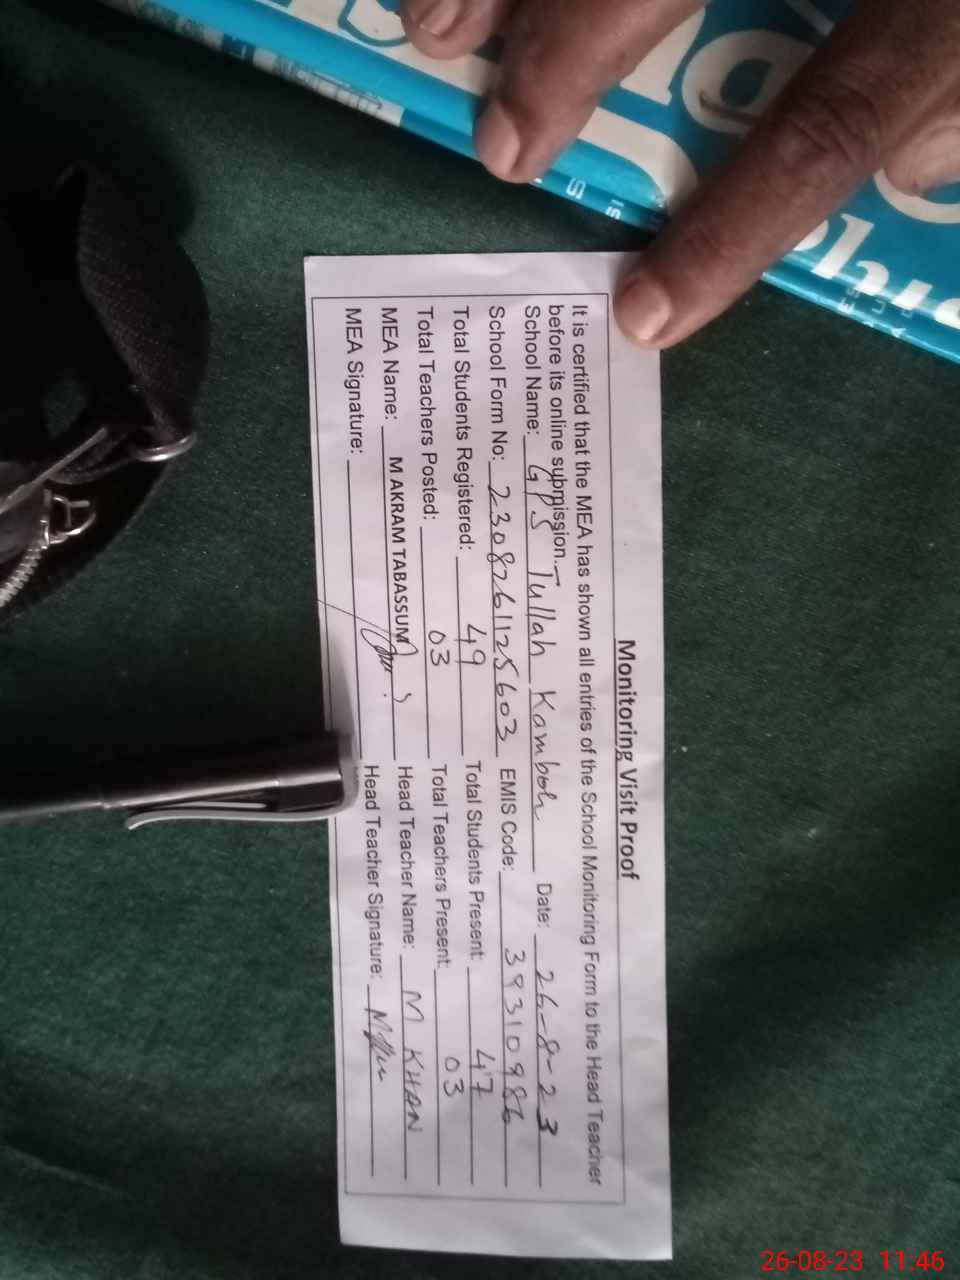 Monitoring Visit Proof
It is certified that the MEA has shown all entries of the School Monitoring Form to the Head Teacher
before its online submission.
School Name: GPS Tullah Kamboh Date: 26-8-23
School Form No: 2308261125603 EMIS Code: 39310986
Total Students Registered: 49 Total Students Present: 47
Total Teachers Posted: 03 Total Teachers Present: 03
MEA Name: M AKRAM TABASSUM Head Teacher Name: M KHAN
MEA Signature: Head Teacher Signature:
26-08-23 11:46